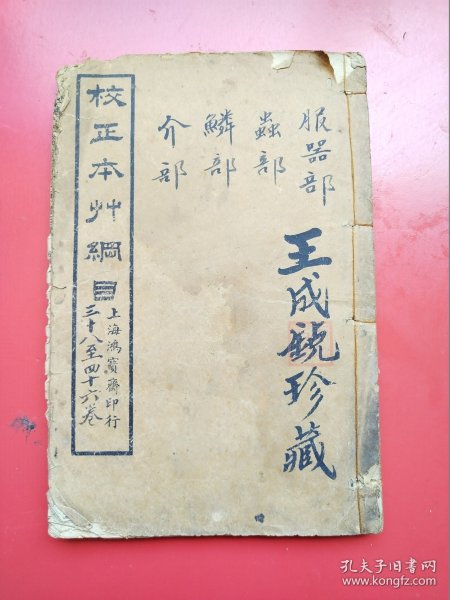 服器部
蟲部
鱗部
介部
王成銳珍藏
校正本艸綱目
上海鴻寶齋印行
三十八至四十六卷
孔夫子旧书网
www.kongfz.com